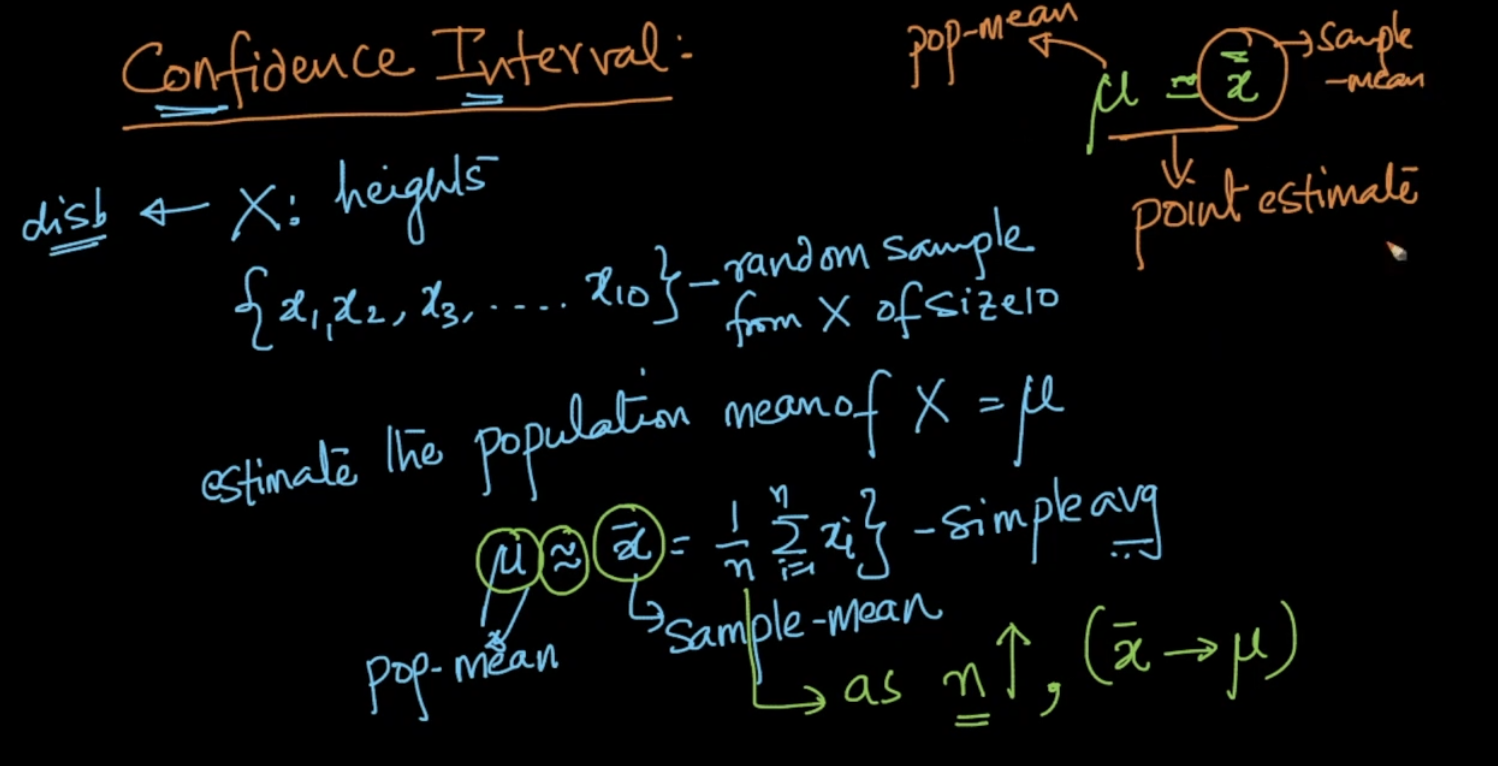 Confidence Interval:
pop-mean
μ ≈ x̄
sample
-mean
point estimate
dist ← X: heights
{x₁, x₂, x₃, ..... x₁₀} - random sample
from X of size 10
estimate the population mean of X = μ
μ ≈ x̄ = 1/n ∑ᵢ₌₁ⁿ xᵢ} - simple avg
pop-mean
sample-mean
as n↑, (x̄ → μ)